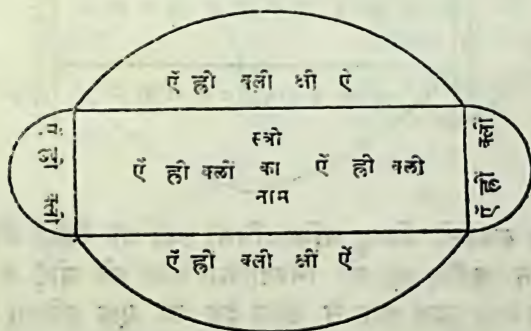 ऐं ह्री क्ली श्री ऐ
ऐं ह्रीं क्लीं
स्त्री
ऐं ह्री क्लीं का ऐं ह्री क्ली
नाम
ऐं ह्रीं क्लीं
ऐं ह्री क्ली श्रीं ऐं